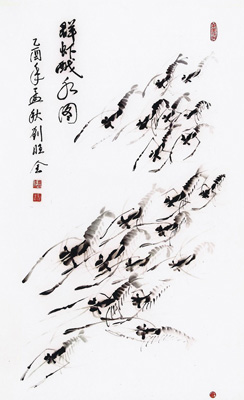 群虾戏水图
乙酉年孟秋刘胜全